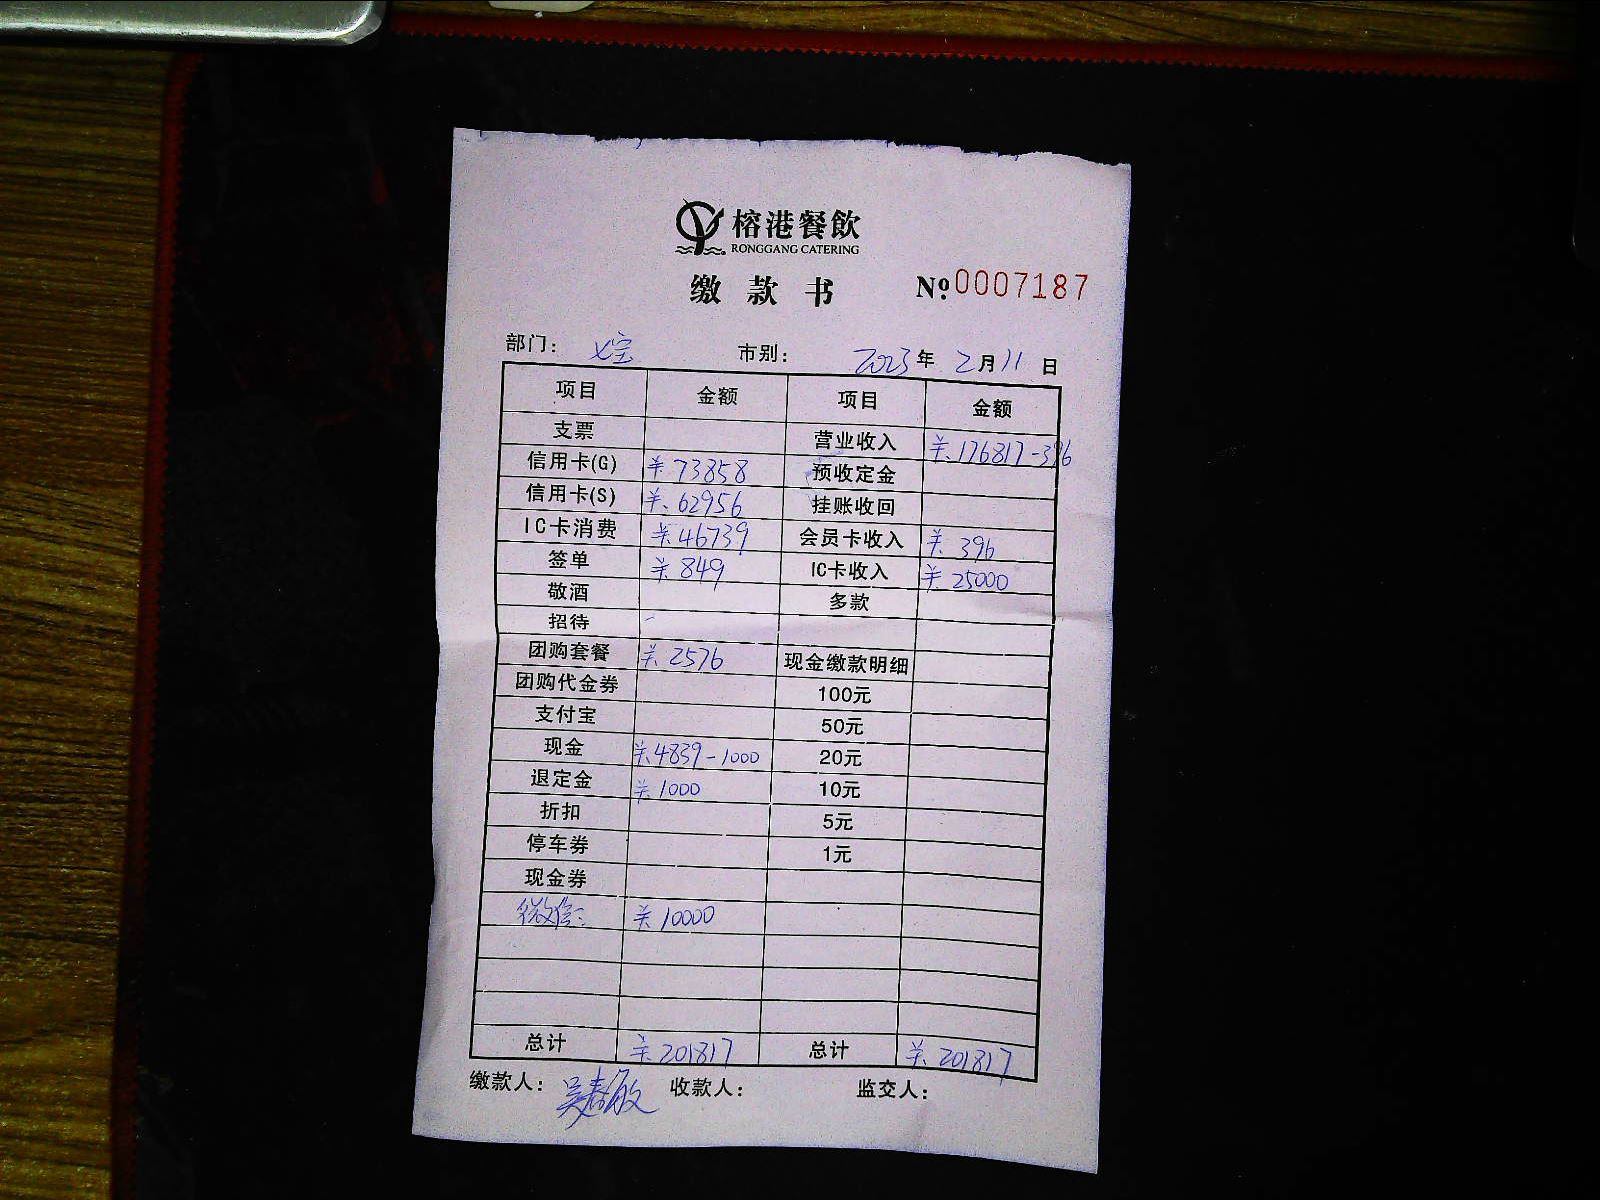 榕港餐飲
RONGGANG CATERING
缴款书 №0007187
部门： 市别： 2023年2月11日
项目 金额 项目 金额
支票 营业收入 ¥.176817-396
信用卡(G) ¥.73858 预收定金
信用卡(S) ¥.62956 挂账收回
IC卡消费 ¥.46739 会员卡收入 ¥.396
签单 ¥.849 IC卡收入 ¥.25000
敬酒 多款
招待
团购套餐 ¥.2576 现金缴款明细
团购代金券 100元
支付宝 50元
现金 ¥.4839-1000 20元
退定金 ¥.1000 10元
折扣 5元
停车券 1元
现金券
微信： ¥.10000
总计 ¥.201817 总计 ¥.201817
缴款人：吴春敏 收款人： 监交人：